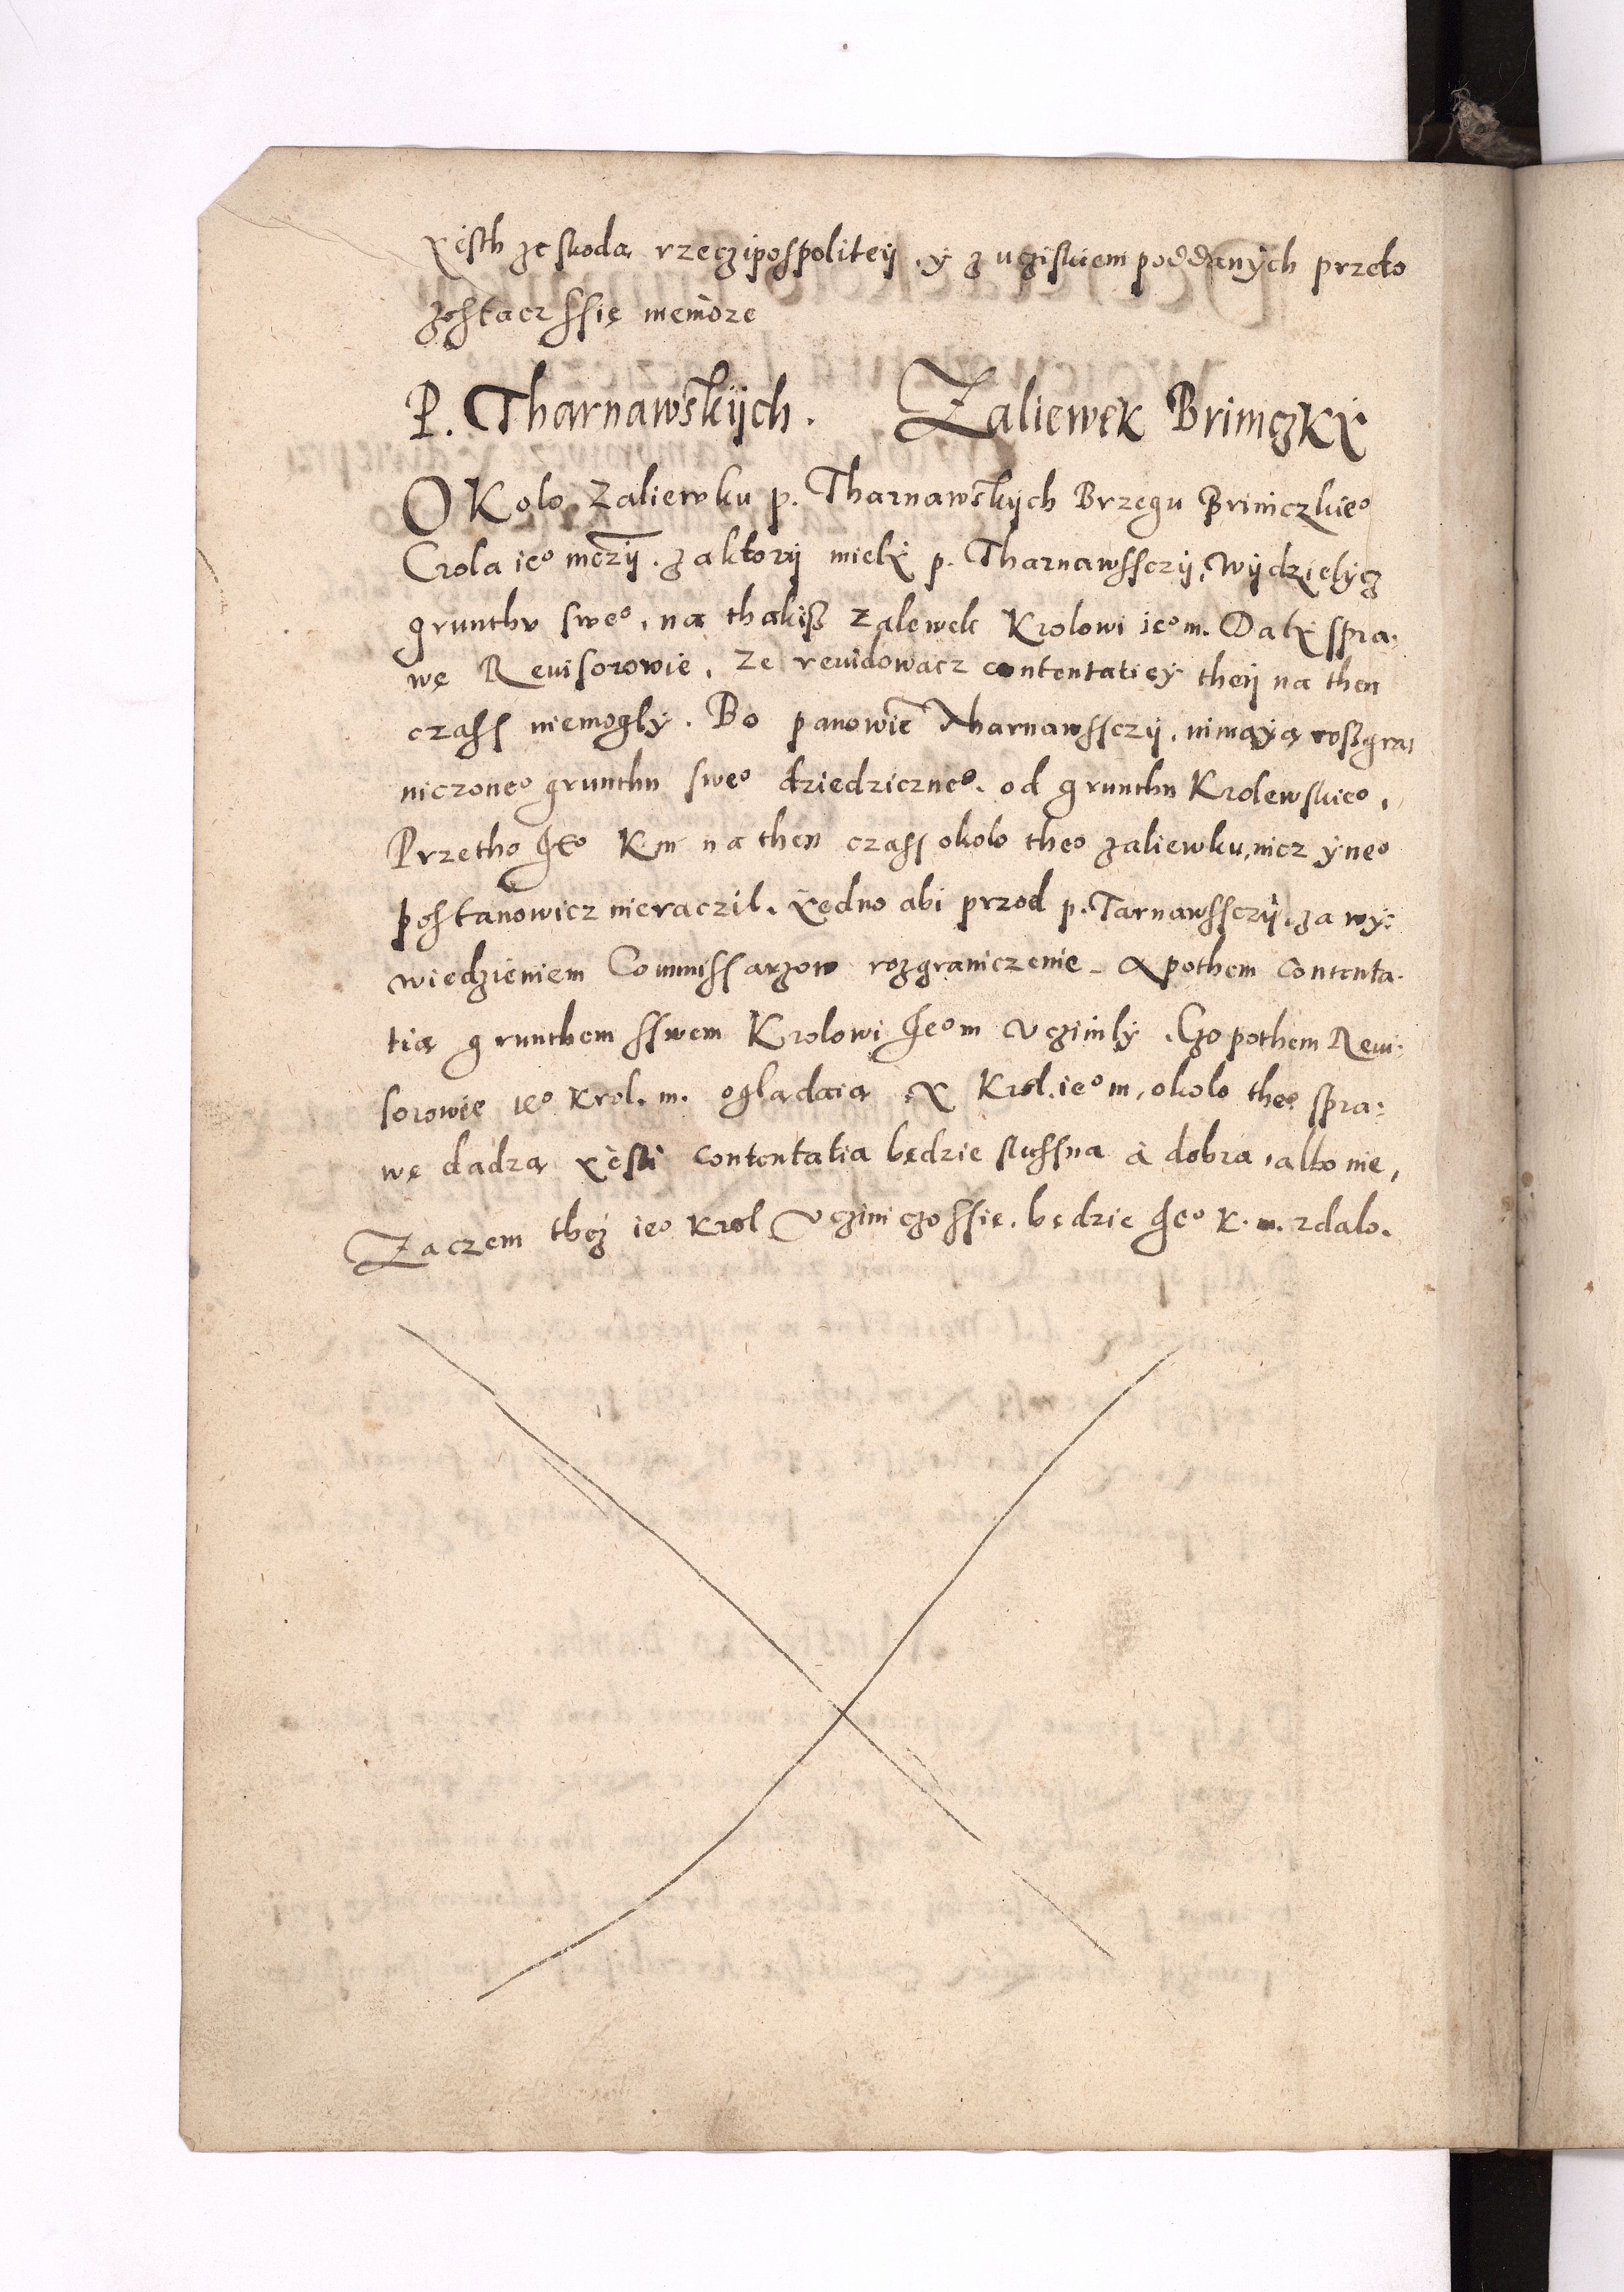 Xiesth ze skodą rzeczipospolitey, y z ucziskiem poddanych przeto
zostacz ssię niemoze
P. Tharnawskijch. Zaliewek BriniczKẏ
OKolo Zaliewku p. Tharnawskijch Brzegu Briniczkieº
Crola ieº mczij. za ktorij mielẏ p. Tharnawssczij, wijdzielẏcz
grunthv sweº, na thakiß zalewek Krolowi ieº m. Dalẏ spra:
wę Reuisorowie, ze reuidowacz contentatieẏ theij na then
czass niemoglẏ. Bo panowie Tharnawssczij, nimaẏą roßgra:
niczoneº grunthu sweº dziedziczneº. od grunthu Krolewskieº,
Przetho Jeº K m na then czass okolo theº zaliewku, nicz ẏneº
postanowicz nieraczil. Xedno abi przod p. Tarnawssczij, za wẏ:
wiedzieniem Commissarzow rozgraniczenie. A pothem contenta:
tią grunthem sswem Krolowi Jeº m vczinilẏ. Czo pothem Reui:
sorowie ieº Krol. m. oglądaią X Krol. ieº m, okolo theº spra:
wę dadzą xesli contentatia będzie slussna à dobra, albo nie,
Zaczem thez ieº Krol vczini czo ssię. będzie Jeº K. m. zdalo.